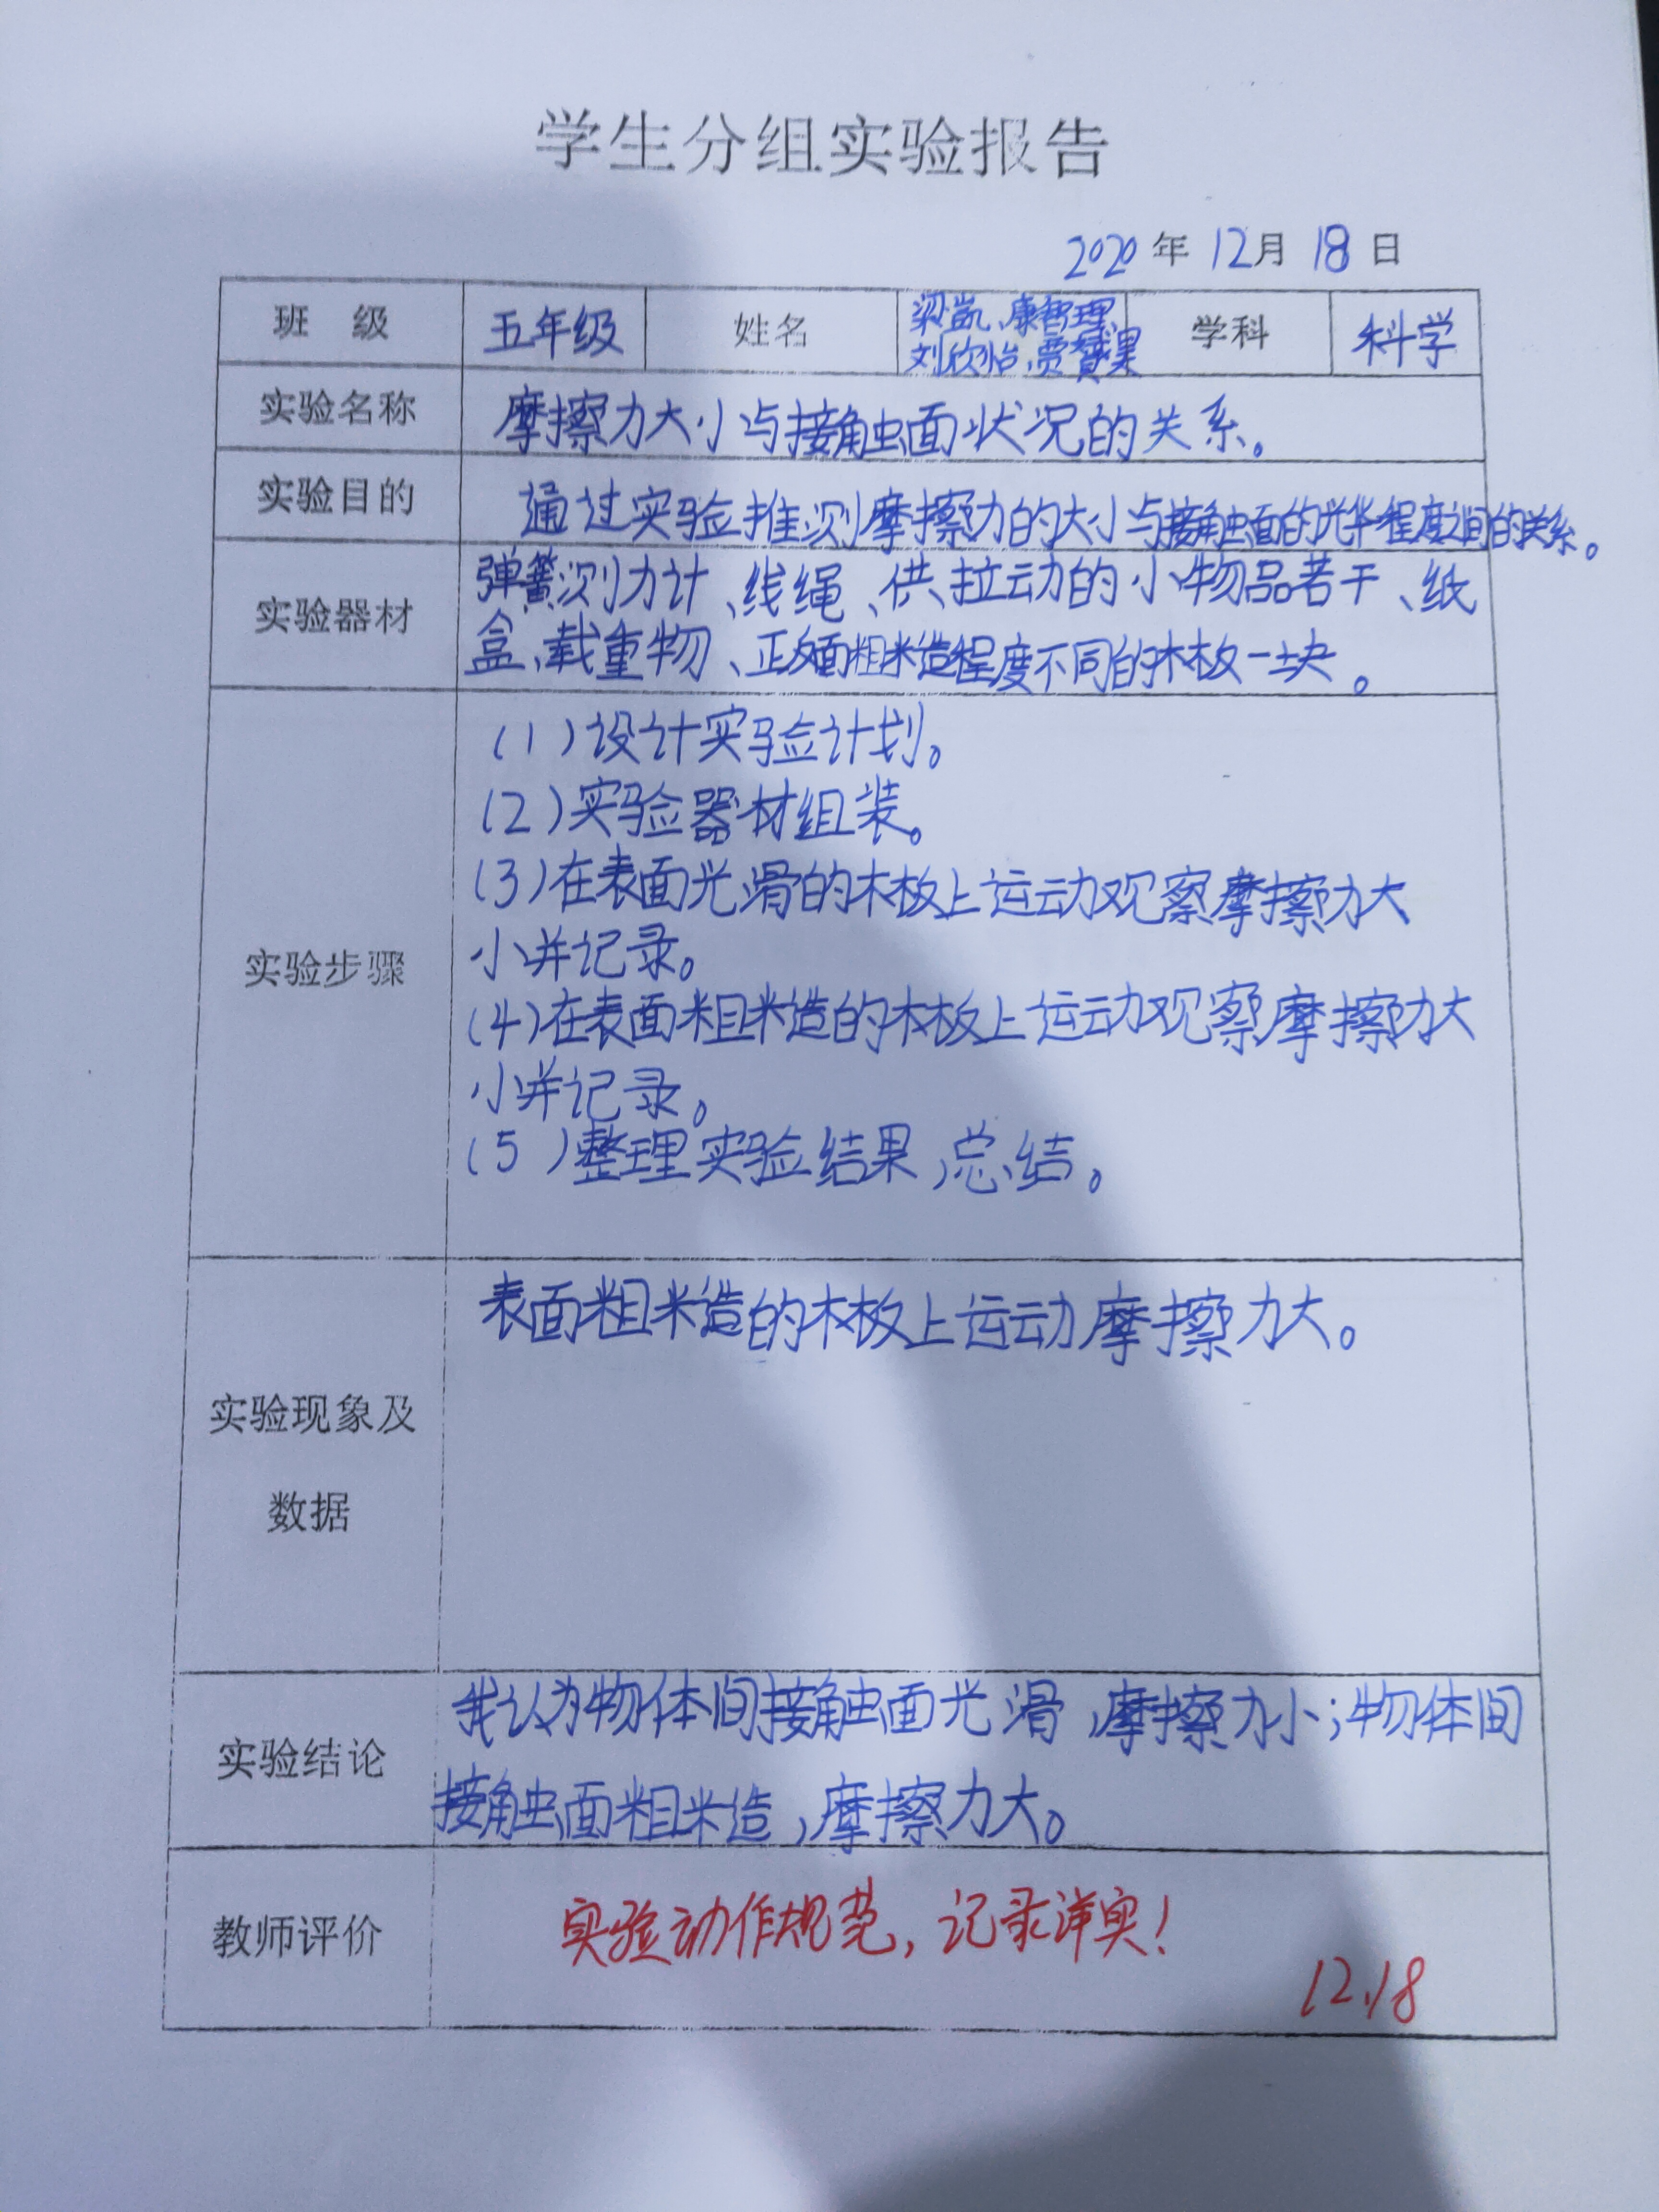 学生分组实验报告
2020年12月18日
班 级 五年级 姓名 梁凯、康智理、 学科 科学
刘欣怡、贾赟果
实验名称 摩擦力大小与接触面状况的关系。
实验目的 通过实验推测摩擦力的大小与接触面的光华程度之间的关系。
实验器材 弹簧测力计、线绳、供拉动的小物品若干、纸
盒、载重物、正反面粗糙程度不同的木板一块。
实验步骤
(1)设计实验计划。
(2)实验器材组装。
(3)在表面光滑的木板上运动观察摩擦力大
小并记录。
(4)在表面粗糙的木板上运动观察摩擦力大
小并记录。
(5)整理实验结果,总结。
实验现象及
数据
表面粗糙的木板上运动摩擦力大。
实验结论 我认为物体间接触面光滑,摩擦力小;物体间
接触面粗糙,摩擦力大。
教师评价 实验动作规范,记录详实!
12.18